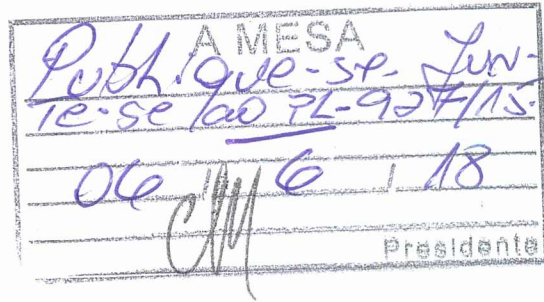 A MESA
Publique-se. Jun-
te-se ao PL-927/15.
06 / 6 / 18
Presidente